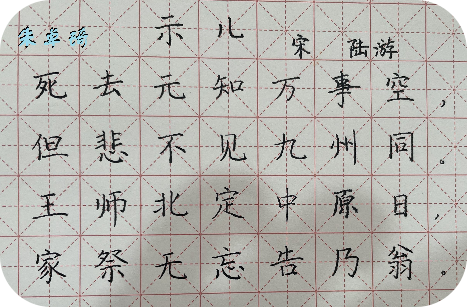 示儿
宋 陆游
死去元知万事空，
但悲不见九州同。
王师北定中原日，
家祭无忘告乃翁。